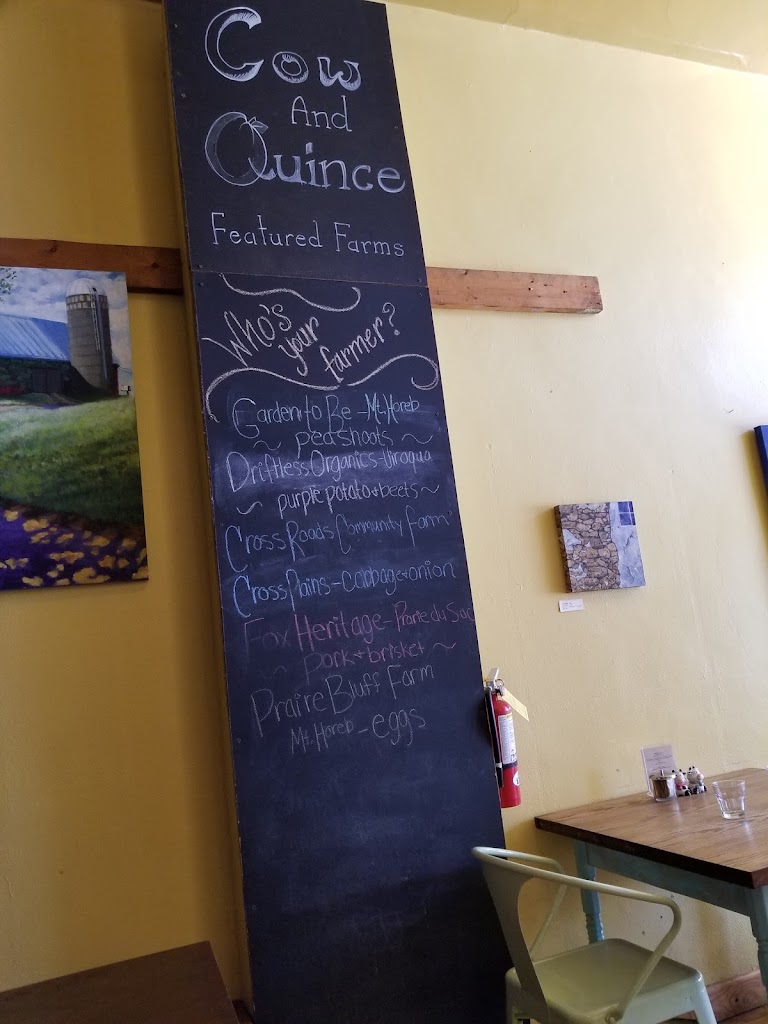 Cow
And
Quince
Featured Farms
Who's
your
farmer?
Garden to Be - Mt. Horeb
~ peashoots ~
Driftless Organics - Viroqua
~ purple potato + beets ~
Cross Roads Community farm
Cross Plains - cabbage + onion
Fox Heritage - Prarie du Sac
~ pork + brisket ~
Praire Bluff Farm
Mt. Horeb - eggs